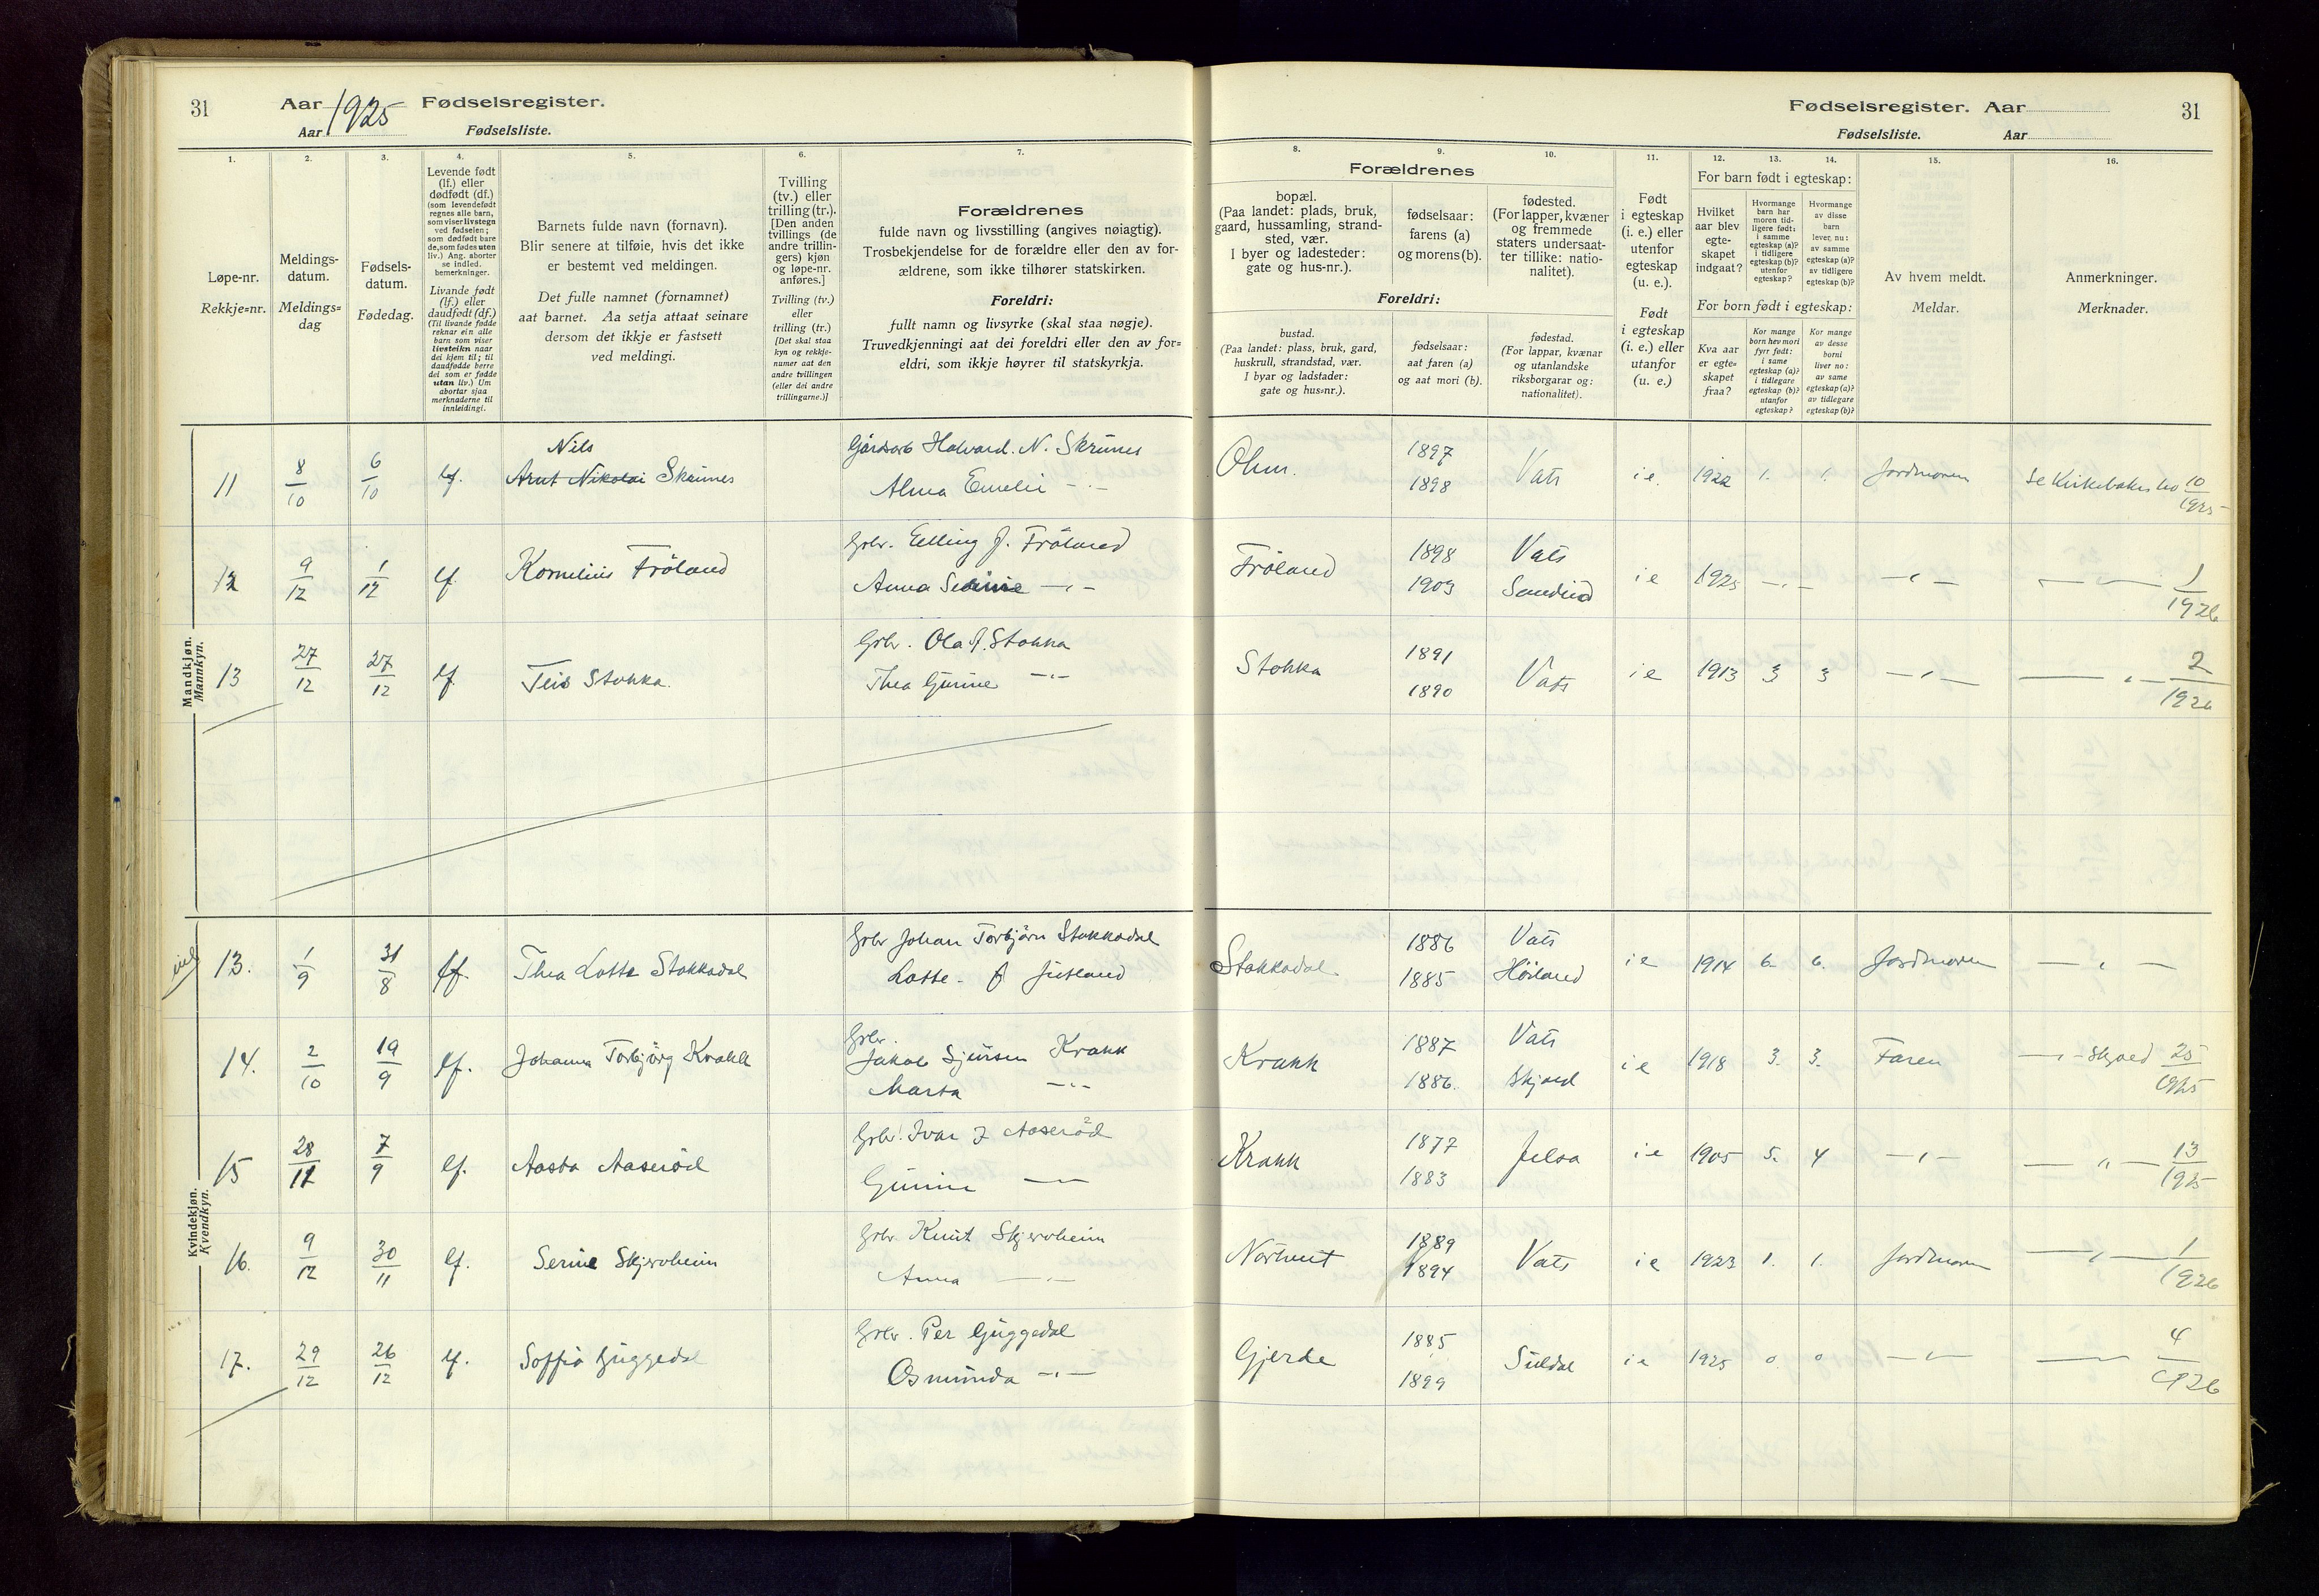 31 Aar 1925 Fødselsregister.
Aar Fødselsliste.
Fødselsregister. Aar 31
Fødselsliste. Aar
1. 2. 3. 4. 5. 6. 7. 8. 9. 10. 11. 12. 13. 14. 15. 16.
Løpe-nr.
Rekkje=nr.
Meldings-
datum.
Meldings=
dag
Fødsels-
datum.
Fødedag.
Levende født
(lf.) eller
dødfødt (df.)
(som levendefødt
regnes alle barn,
som viser livstegn
ved fødselen;
som dødfødt bare
de, som fødes uten
liv.) Ang. aborter
se indled.
bemerkninger.
Livande født
(lf.) eller
daudfødt (df.)
(Til livande fødde
reknar ein alle
barn som viser
livsteikn naar
dei kjem til; til
daudfødde berre
dei som er fødde
utan liv.) Um
abortar sjaa
merknaderne til
innleidingi.
Barnets fulde navn (fornavn).
Blir senere at tilføie, hvis det ikke
er bestemt ved meldingen.
Det fulle namnet (fornamnet)
aat barnet. Aa setja attaat seinare
dersom det ikkje er fastsett
ved meldingi.
Tvilling
(tv.) eller
trilling (tr.).
[Den anden
tvillings (de
andre trillin-
gers) kjøn
og løpe-nr.
anføres.]
Tvilling (tv.)
eller
trilling (tr.)
[Det skal staa
kyn og rekkje-
numer aat den
andre tvillingen
(eller dei andre
trillingarne.)]
Forældrenes
fulde navn og livsstilling (angives nøiagtig).
Trosbekjendelse for de forældre eller den av for-
ældrene, som ikke tilhører statskirken.
Foreldri:
fullt namn og livsyrke (skal staa nøgje).
Truvedkjenningi aat dei foreldri eller den av for=
eldri, som ikkje høyrer til statskyrkja.
Forældrenes
bopæl.
(Paa landet: plads, bruk,
gaard, hussamling, strand-
sted, vær.
I byer og ladesteder:
gate og hus-nr.).
fødselsaar:
farens (a)
og morens (b).
fødested.
(For lapper, kvæner
og fremmede
staters undersaat-
ter tillike: natio-
nalitet).
Foreldri:
bustad.
(Paa landet: plass, bruk, gard,
huskrull, strandstad, vær.
I byar og ladstader:
gate og hus=nr.).
fødselsaar:
aat faren (a)
og aat mori (b).
fødestad.
(For lappar, kvænar
og utanlandske
riksborgarar og:
nationalitet).
Født
i egteskap
(i. e.) eller
utenfor
egteskap
(u. e.).
Født
i egteskap
(i. e.) eller
utanfor
(u. e.)
For barn født i egteskap:
Hvilket
aar blev
egte-
skapet
indgaat?
Hvormange
barn har
moren tid-
ligere født:
i samme
egteskap (a)?
i tidligere
egteskap (b)?
utenfor
egteskap?
Hvormange
av disse
barn
lever, nu:
av samme
egteskap (a)?
av tidligere
egteskap (b)?
For born født i egteskap:
Kva aar
er egte=
skapet
fraa?
Kor mange
born hev mori
fyrr født:
i same
egteskap (a)?
i tidlegare
egteskap (b)?
utanfor
egteskap?
Kor mange
av desse
borni
liver no:
av same
egteskap (a)?
av tidlegare
egteskap (b)?
Av hvem meldt.
Meldar.
Anmerkninger.
Merknader.
Mandkjøn.
Mannkyn.
Nils
11 8/10 6/10 lf. Arnt Nikolai Skeimes Gårdsarb Halvard. N. Skeimes Alma Emelie - " - Ølen. 1897 1898 Vats i e. 1922 1. 1. Jordmoren Se Kirkeboken no 10/1925
12 9/12 1/12 lf. Kornelius Fröland Gbr. Elling J. Fröland Anna - " - Fröland 1898 1903 Vats Sandeid i e 1925 - " - - " - - " - 1/1926
13 27/12 27/12 lf Teis Stokka. Gbr. Ola J. Stokka Thea Gurine - " - Stokka 1891 1890 Vats i e 1913 3 3 - " - - " - 2/1926
Kvindekjøn.
Kvendkyn.
13. 1/9 31/8 lf. Thea Lotte Stakkadal Gbr Johan Torbjörn Stakkadal Lotte - f Stakkadal. 1886 1885 Vats i e 1914 6. 6. Jordmoren - " -
14. 2/10 19/9 lf. Johanna Torbjörg Krakk Gbr. Jakob Sjursen Krakk Marta - " - Krakk 1887 1886. Vats Skjold i e 1918 3. 3. Faren - " - Skjold 25/1925
15 28/11 7/9 lf. Aasta Aaseröd Gbr. Ivar J Aaseröd Gurine - " - Krakk 1877 1883 Jelsa i e 1905 5. 4 - " - - " - 13/1925
16. 9/12 30/11 lf. Serine Skjerveheim Gbr. Knut Skjerveheim Anna - " - 1889 1894 Vats i e 1923 1. 1. Jordmoren - " - 1/1926
17. 29/12 26/12 lf. Soffia Guggedal Gbr. Per Guggedal Osmunda - " - Gjerde 1885 1899 Suldal i e 1925 0. 0 - " - - " - 4/1926